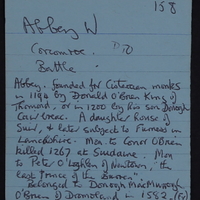 158
Abbey W
Corcomroe
Battle
Abbey. founded for Cistercian monks
in 1194 by Donald O'Brien King of
Thomond, or in 1200 by his son Donogh
Cairbreac. A daughter house of
Suir, & later subject to Furness in
Lancashire. Mon. to Conor O'Brien
killed 1267 at Suidaine. Mon
to Peter O'Loghlen of Newtown, "the
last Prince of the Burren".
Belonged to Donogh MacMurrogh
O'Brien of Dromoland in 1582,